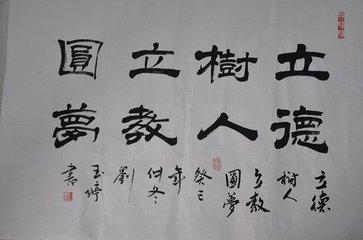 立德
樹人
立教
圓夢
立德
树人
立教
圓夢
癸巳
年
仲冬
劉
玉婷
書